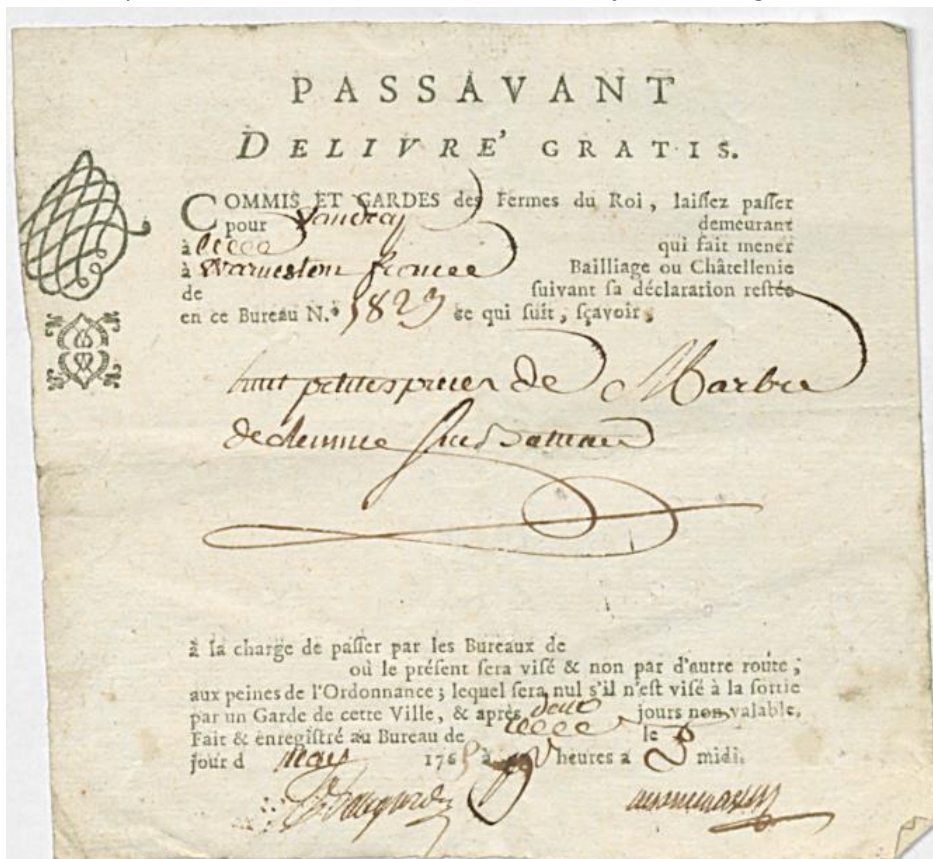 PASSAVANT
DELIVRE' GRATIS.
COMMIS ET GARDES des Fermes du Roi, laiſſez paſſer
pour demeurant
à qui fait mener
à Warneston france Bailliage ou Châtellenie
de ſuivant ſa déclaration reſtée
en ce Bureau N.º 1823 ce qui ſuit, ſçavoir,
huit petites pieces de Marbre
à la charge de paſſer par les Bureaux de
où le préſent ſera viſé & non par d'autre route;
aux peines de l'Ordonnance; lequel ſera nul s'il n'eſt viſé à la ſortie
par un Garde de cette Ville, & après deux jours non valable.
Fait & enregiſtré au Bureau de le
jour d 176 à heures a midi.